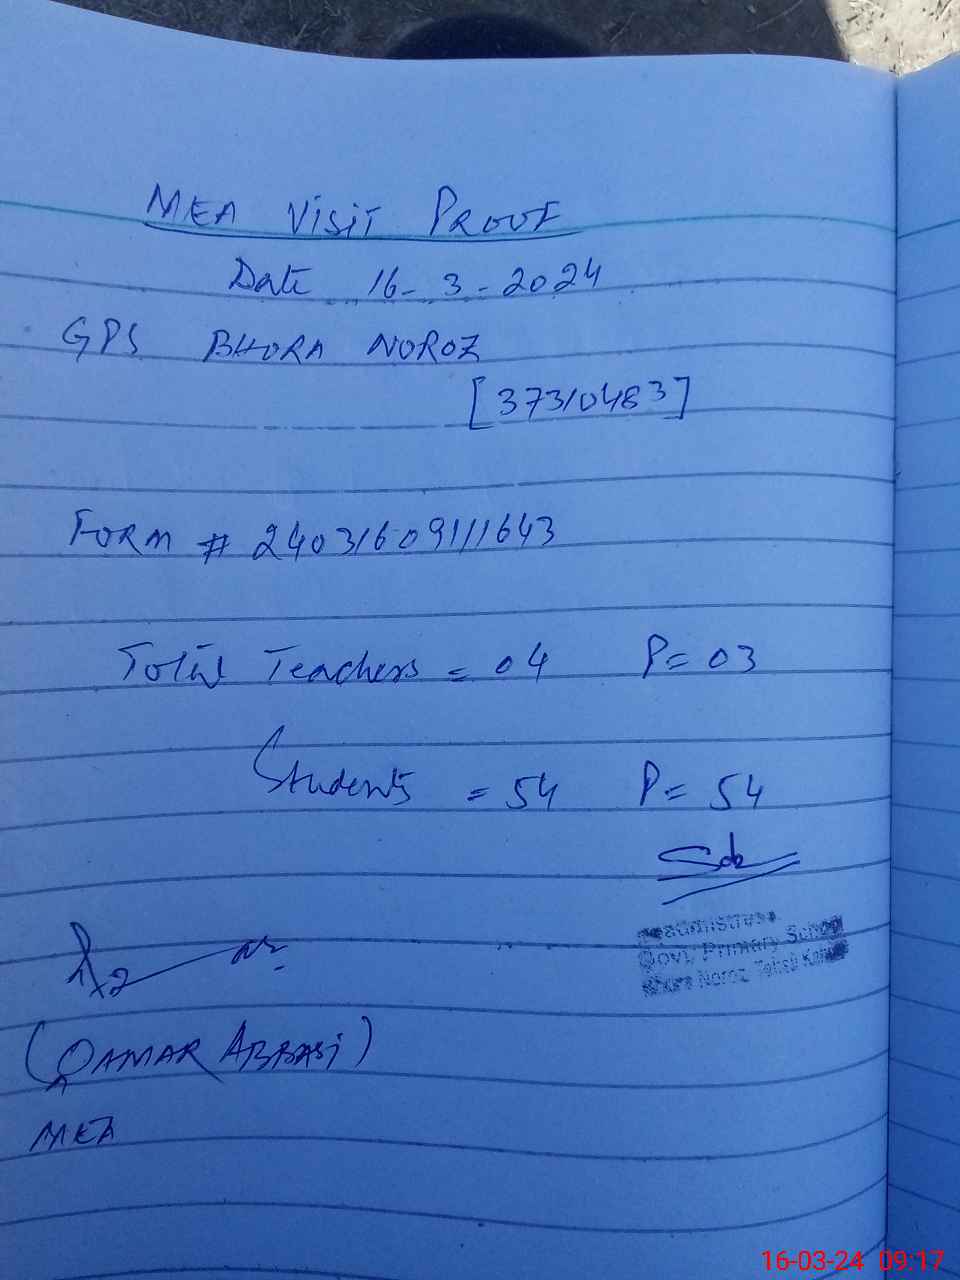 MEA VISIT PROOF
Date 16-3-2024
GPS BHORA NOROZ
[37310483]
FORM # 24031609111643
Total Teachers = 04 P= 03
Students = 54 P= 54
(QAMAR ABBASI)
MEA
Headmistress
Govt. Primary School
Bhora Noroz Tehsil
16-03-24 09:17